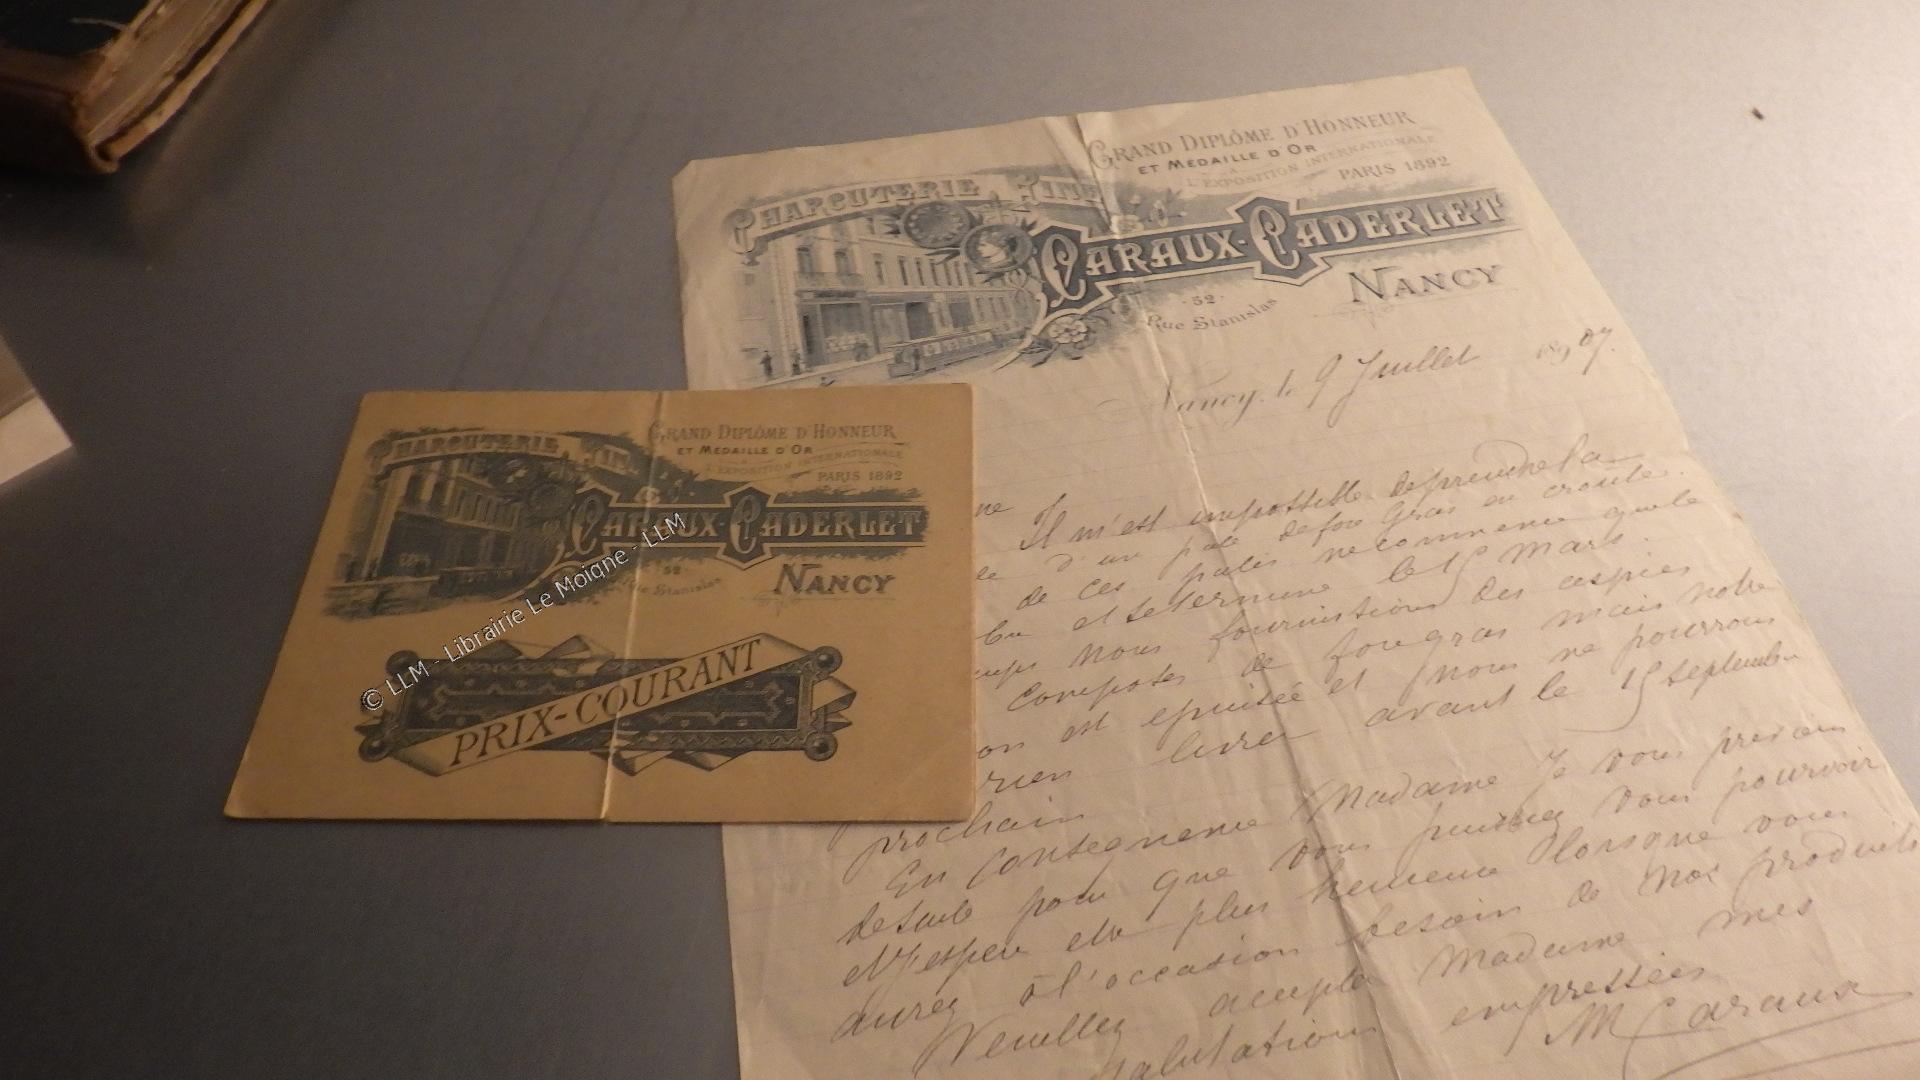 CHARCUTERIE FINE
GRAND DIPLÔME D'HONNEUR
ET MEDAILLE D'OR
À
L'EXPOSITION INTERNATIONALE
PARIS 1892
CARAUX-CADERLET
52
Rue Stanislas
NANCY
Nancy, le 9 Juillet 1907.
Il m'est impossible de prendre la
d'un pate de foie gras en croute.
de ces patés recommence que le
et se termine le 15 mars.
nous fournissions des aspics
composés de foie gras mais notre
est epuisée et nous ne pourrons
rien livrer avant le 15 septembre
prochain
En consequence Madame Je vous previens
de suite pour que vous puissiez vous pourvoir
et j'espere etre plus heureuse lorsque vous
aurez à l'occasion besoin de nos produits
Veuillez accepter Madame mes
salutations empressées
M Caraux
CHARCUTERIE FINE
GRAND DIPLÔME D'HONNEUR
ET MEDAILLE D'OR
À
L'EXPOSITION INTERNATIONALE
PARIS 1892
CARAUX-CADERLET
52
Rue Stanislas
NANCY
PRIX-COURANT
© LLM - Librairie Le Moigne - LLM